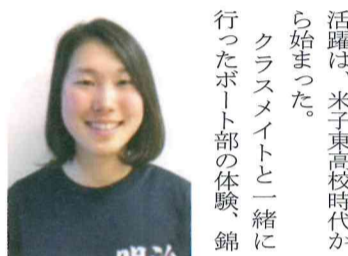 活躍は、米子東高校時代か
ら始まった。
クラスメイトと一緒に
行ったボート部の体験、錦
明治